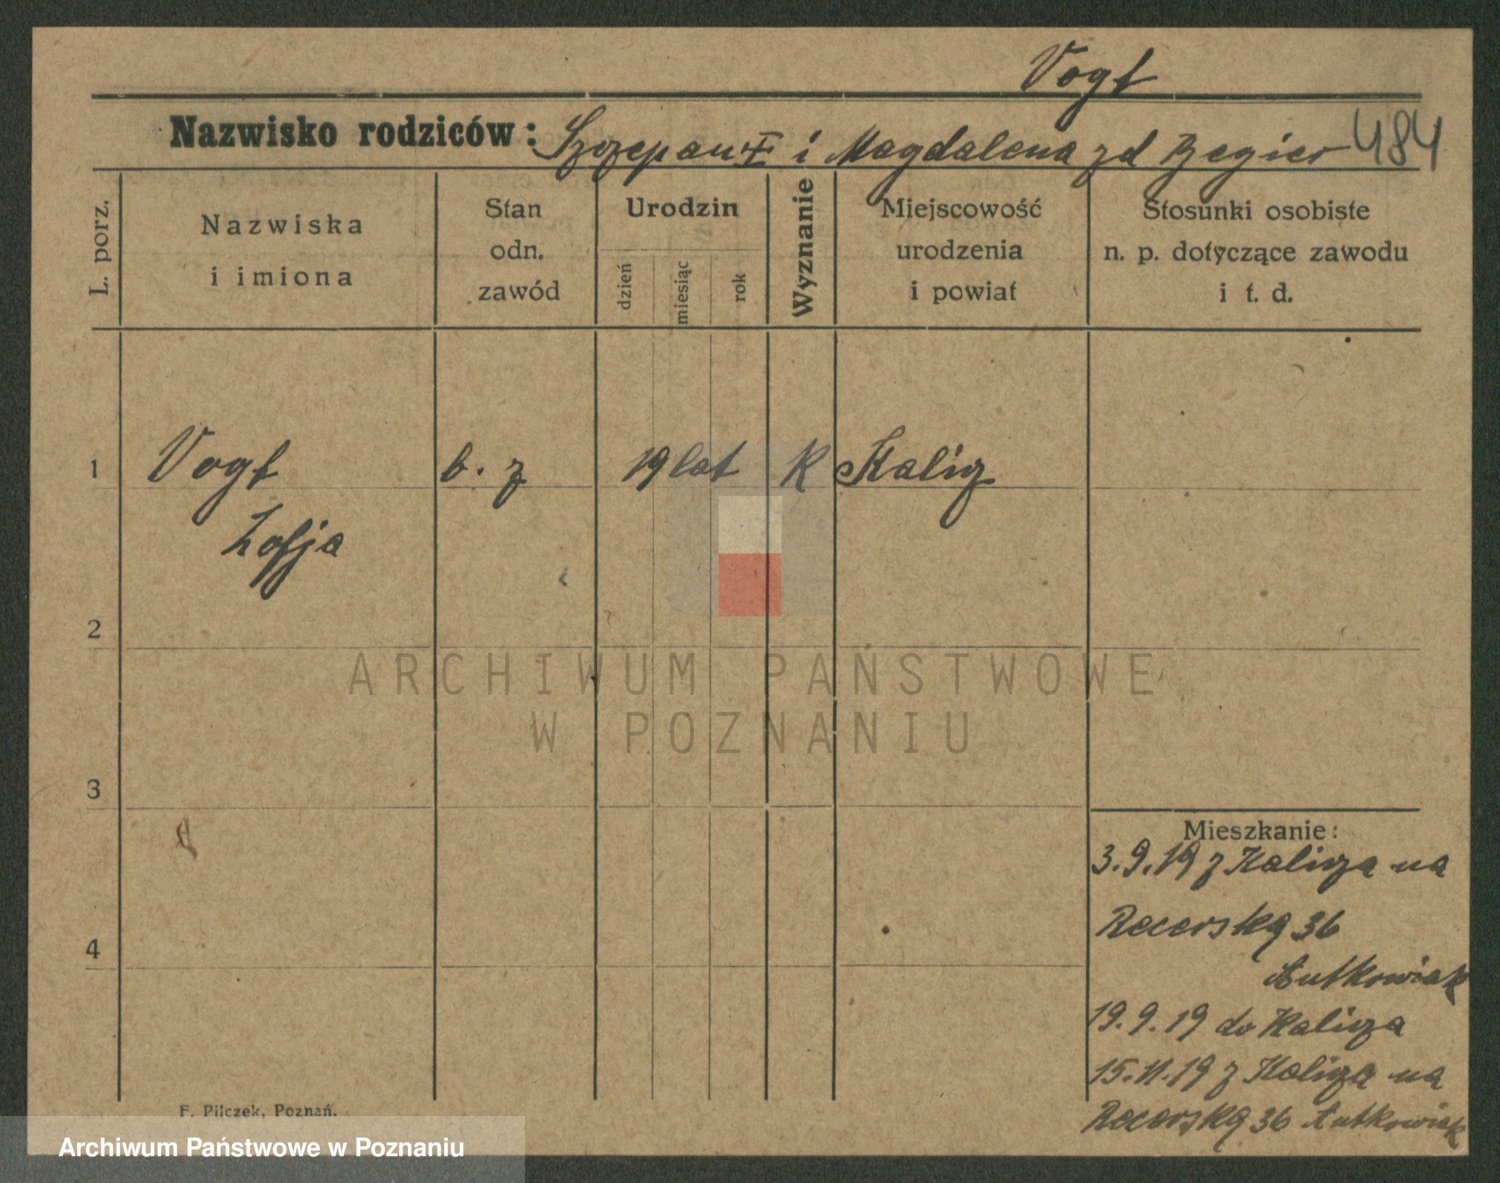 Vogt
Nazwisko rodziców: Szczepan i Magdalena zd Begier 484
L. porz.
Nazwiska
i imiona
Stan
odn.
zawód
Urodzin
dzień
miesiąc
rok
Wyznanie
Miejscowość
urodzenia
i powiat
Stosunki osobiste
n. p. dotyczące zawodu
i t. d.
1 Vogt b. z 19 lat K Kalisz
Zofja
2
3
4
ARCHIWUM PAŃSTWOWE
W POZNANIU
Mieszkanie:
3.9.19 z Kalisza na
36
19.9.19 do Kalisza
15.11.19 z Kalisza na
36
F. Pilczek, Poznań.
Archiwum Państwowe w Poznaniu